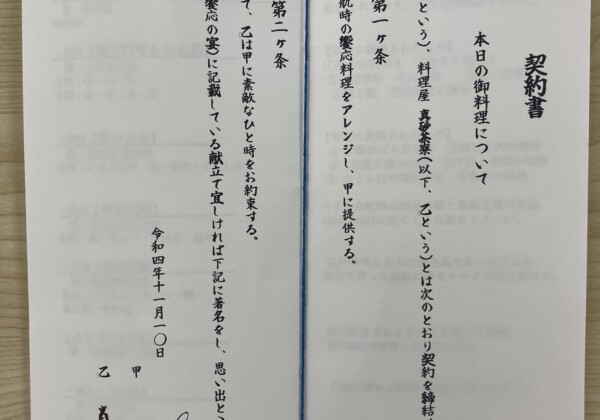 契約書
本日の御料理について
という)、料理屋 真砂茶寮(以下、乙という)とは次のとおり契約を締結
第一ヶ条
航時の饗応料理をアレンジし、甲に提供する。
第二ヶ条
て、乙は甲に素敵なひと時をお約束する。
饗応の宴)に記載している献立て宜しければ下記に著名をし、思い出と
令和四年十一月一〇日
甲
乙